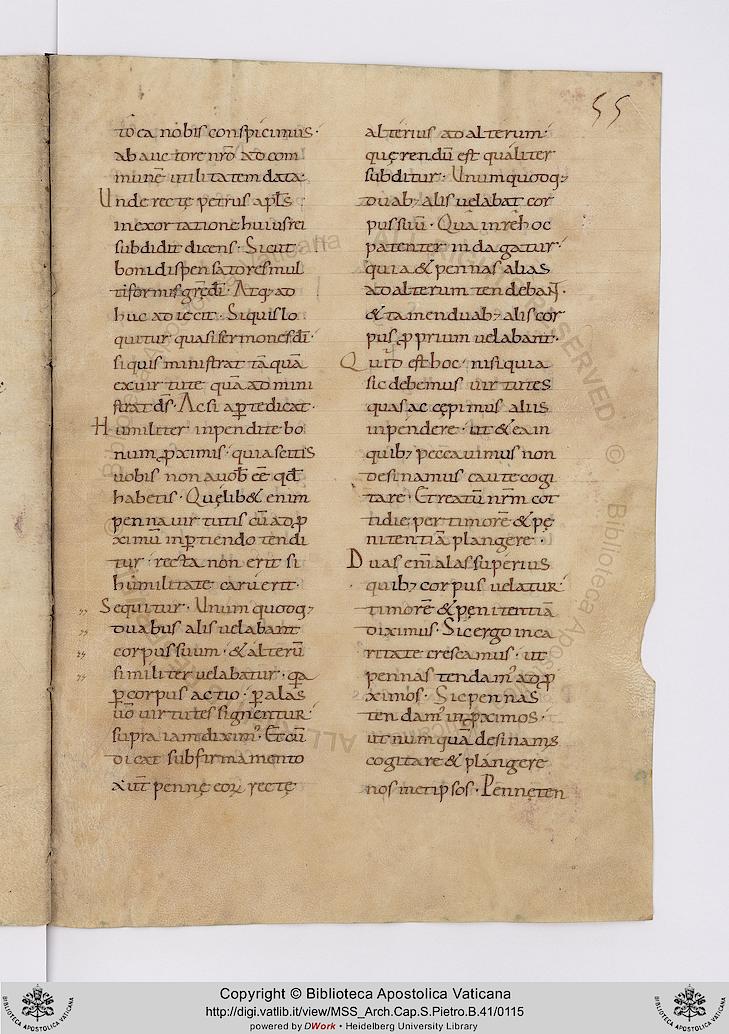 55
to ca nobis conspicimus·
ab auctore nr̄o ad com
munē utilitatem data·
Unde recte petrus apl̄s
in exortatione huius rei
subdidit dicens· Sicut
boni dispensatores mul
tiformis gr̄ę dī· Atq; ad
huc adiecit· Siquis lo
quitur quasi sermones dī·
siquis ministrat tāquā
ex uirtute quā admini
strat d̄s· Ac si ap̲te dicat·
Humiliter inpendite bo
num p̲ximis· quia scitis
uobis non a uob̄ ēē qd̄
habetis· Quęlib& enim
penna uirtutis cū ad p̲
ximū in p̲tiendo tendi
tur· recta non erit si
humilitate caruerit·
Sequitur· Unumquodq;
duabus alis uelabant
corpus suum· & alterū
similiter uelabatur· q̄a
p̲ corpus actio· p̲ alas
uō uirtutes signentur·
supra iam diximꝰ· Et cū
dicat sub firmamento
erant pennę eoꝝ rectę
alterius ad alterum·
quęrendū est qualiter
subditur· Unumquodq;
duab; alis uelabat cor
pus suū· Qua in re hoc
patenter indagatur·
quia & pennas alias
ad alterum tendebant·
& tamen duab; alis cor
pus p̲prium uelabant·
Quid est hoc· nisi quia
sic debemus uirtutes
quas accępimus aliis
inpendere· ut & ea in
quib; peccauimus non
desinamus caute cogi
tare· Et reatū nr̄m cot
tidie per timorē & pę
nitentiā plangere·
Duas enī alas superius
quib; corpus uelatur
timorē & pęnitentiā
diximus· Sic ergo in ca
ritate crescamus· ut
pennas tendamꝰ ad p̲
ximos· Sic pennas
tendamꝰ in p̲ximos·
ut numquā desinamꝰ
cogitare & plangere
nosmetipsos· Pennę ten
Copyright © Biblioteca Apostolica Vaticana
http://digi.vatlib.it/view/MSS_Arch.Cap.S.Pietro.B.41/0115
powered by DWork • Heidelberg University Library